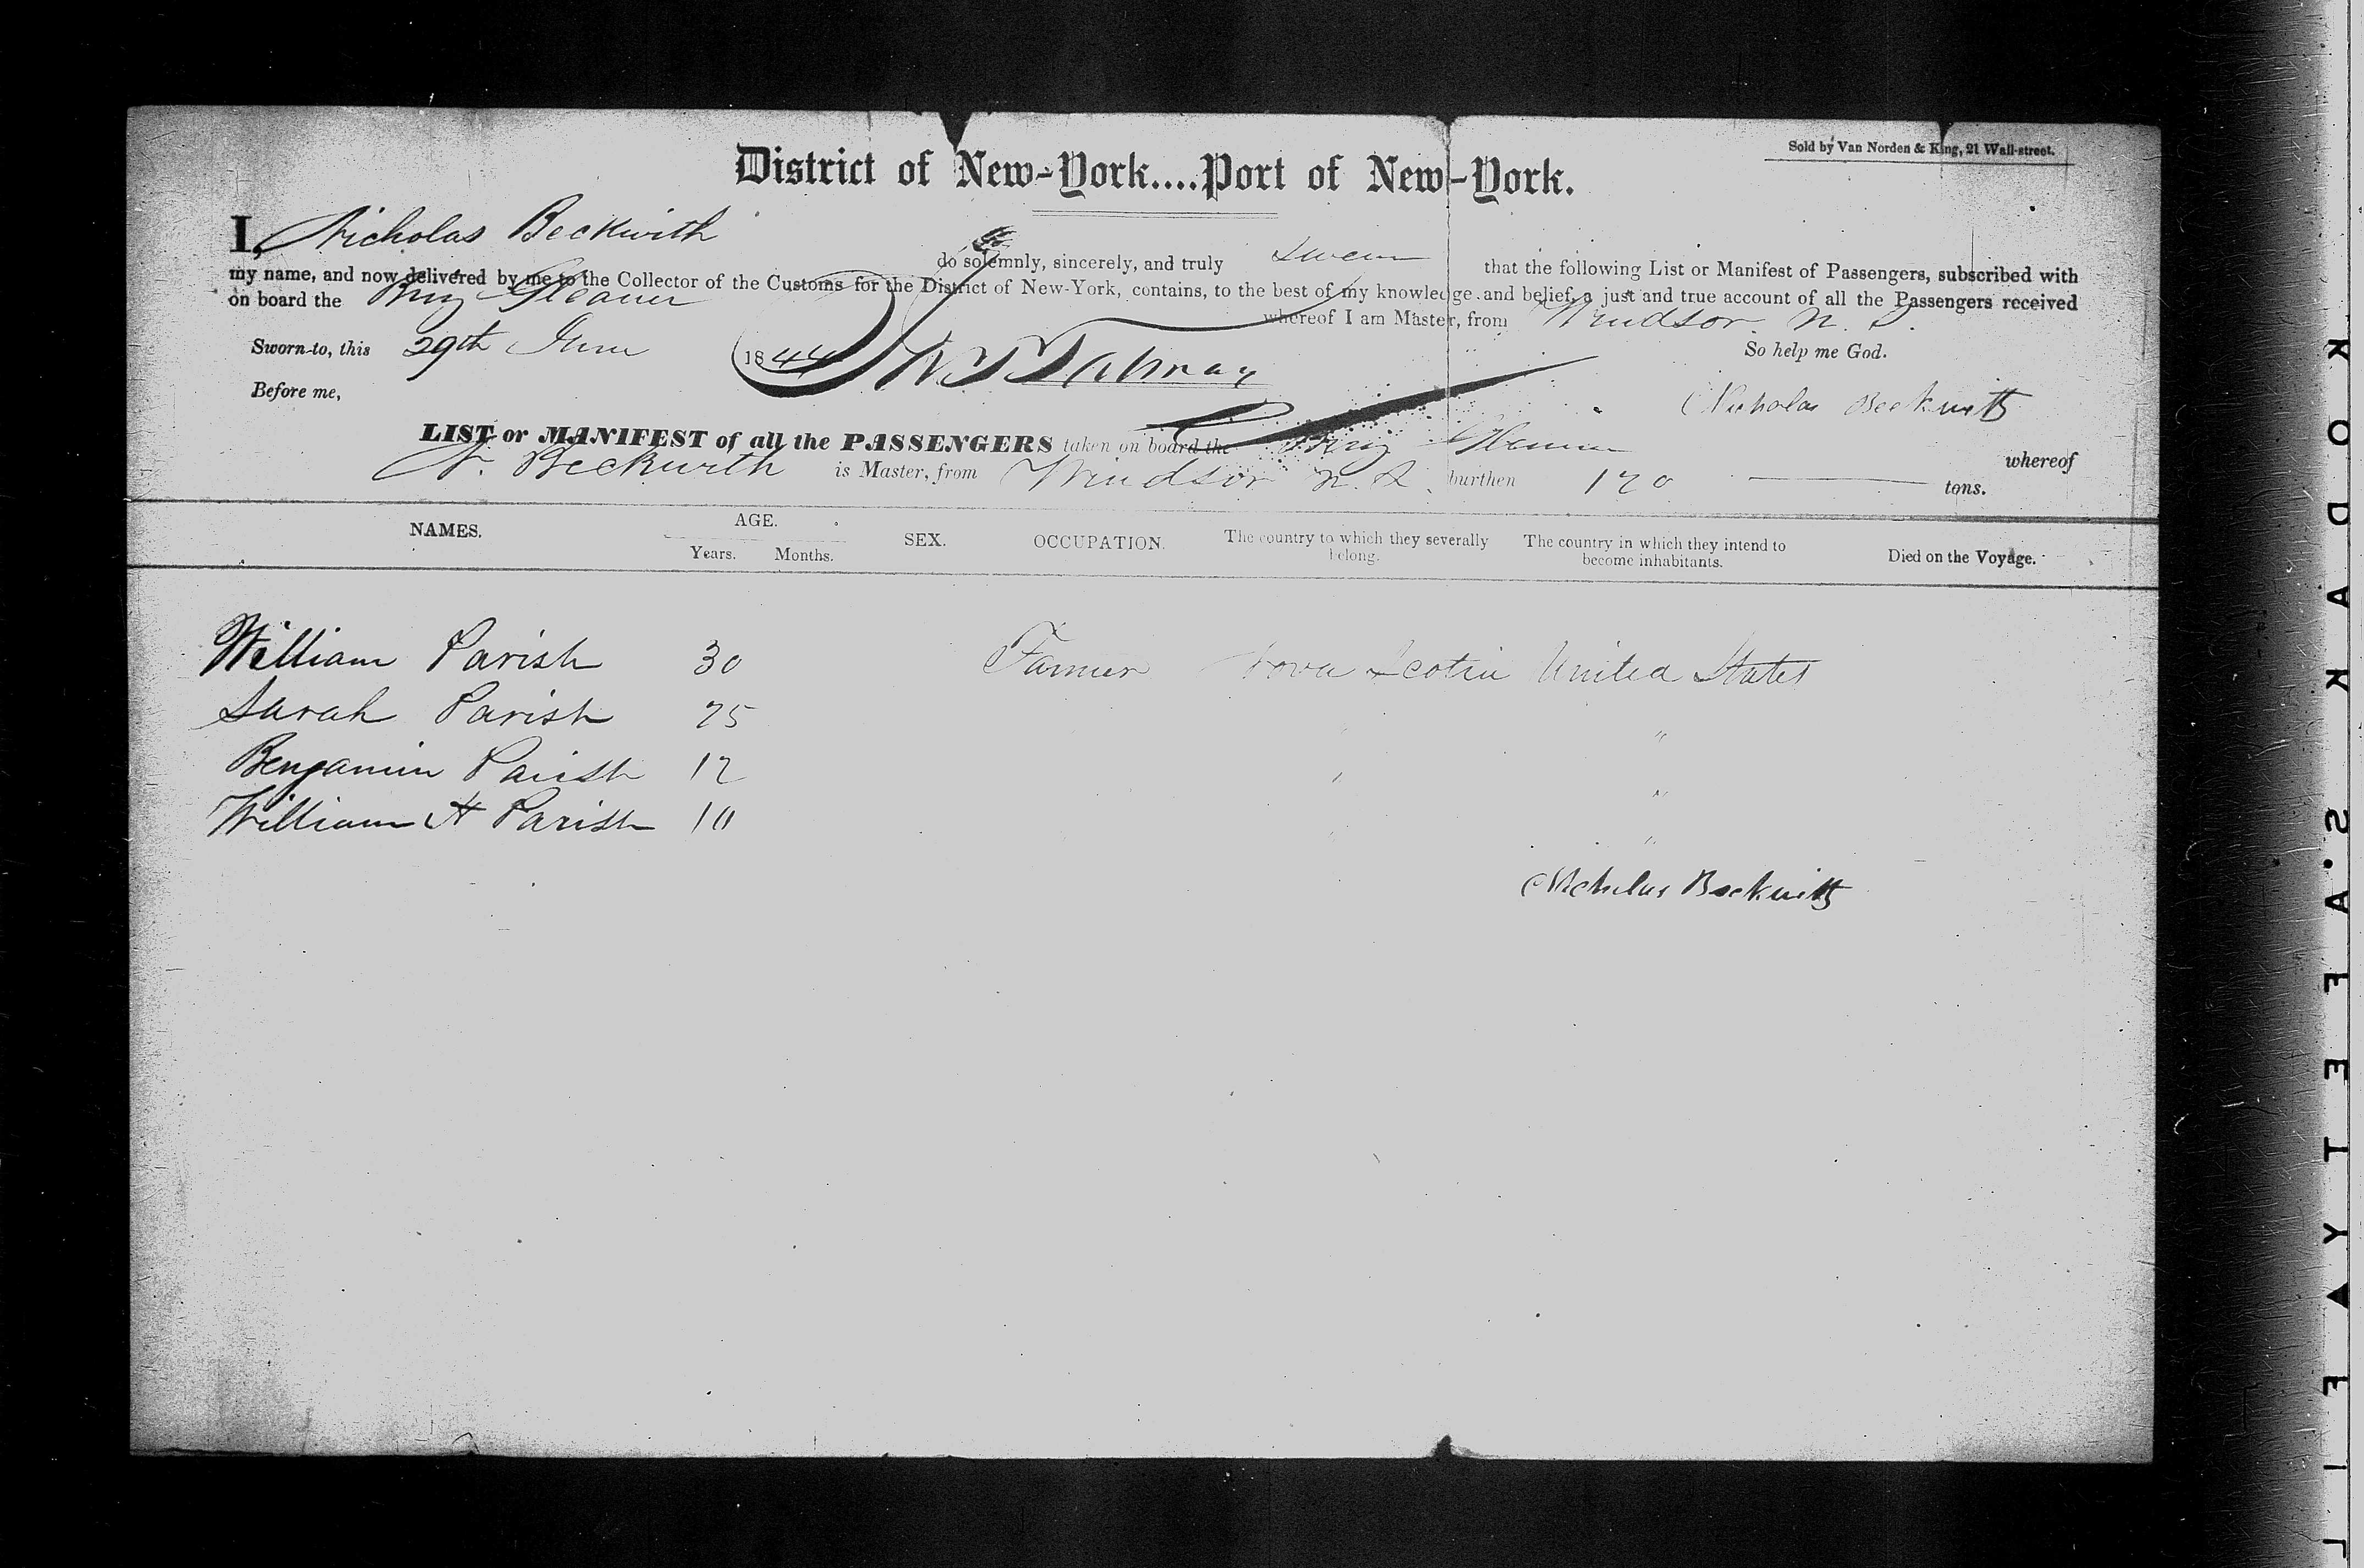 Sold by Van Norden & King, 21 Wall-street.
District of New-York....Port of New-York.
I, Nicholas Beckwith do solemnly, sincerely, and truly swear that the following List or Manifest of Passengers, subscribed with
my name, and now delivered by me to the Collector of the Customs for the District of New-York, contains, to the best of my knowledge and belief, a just and true account of all the Passengers received
on board the Brig Gleaner whereof I am Master, from Windsor N. S.
Sworn to, this 29th June 1844 So help me God.
Before me, Nicholas Beckwith
LIST or MANIFEST of all the PASSENGERS taken on board the Brig Gleaner whereof
N. Beckwith is Master, from Windsor N. S. burthen 120 tons.
NAMES. AGE. SEX. OCCUPATION. The country to which they severally The country in which they intend to Died on the Voyage.
Years. Months. belong. become inhabitants.
William Parish 30 Farmer Nova Scotia United States
Sarah Parish 25 " "
Benjamin Parish 12 " "
William H Parish 10 " "
Nicholas Beckwith